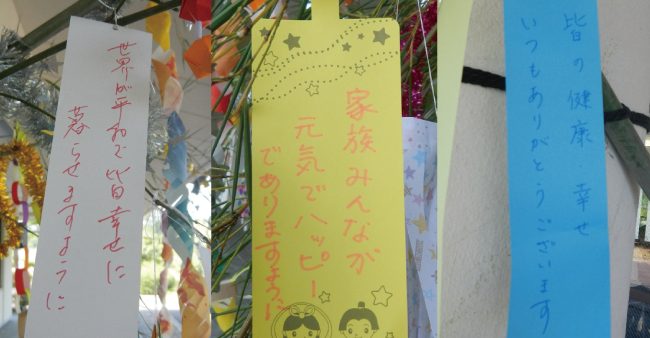 世界が平和で皆幸せに
暮らせますように
家族みんなが
元気でハッピー
でありますように
皆の健康・幸せ
いつもありがとうございます